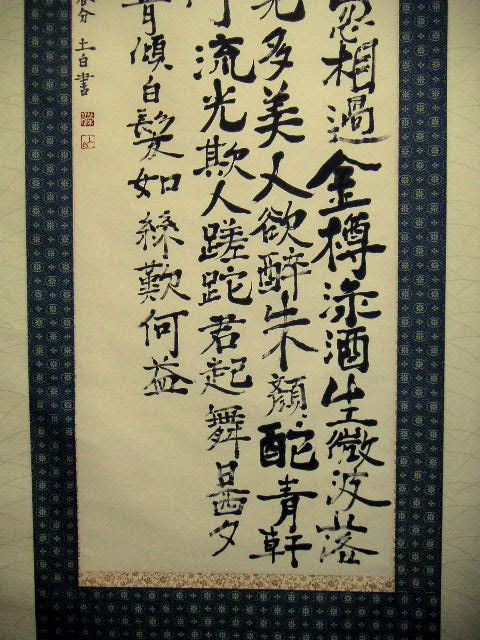 忽相過金樽淥酒生微波落
覺多美人欲醉朱顏酡青軒
何流光欺人蹉跎君起舞日西夕
肯傾白髮如絲歎何益
分土白書